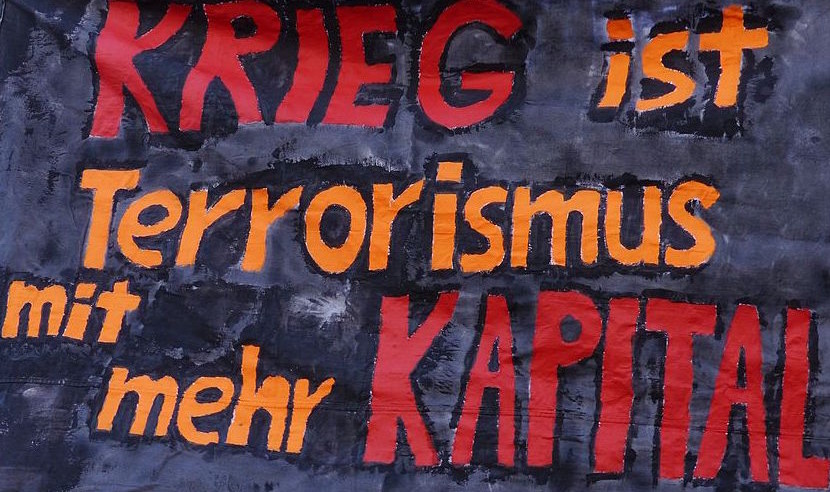 KRIEG ist
Terrorismus
mit mehr KAPITAL